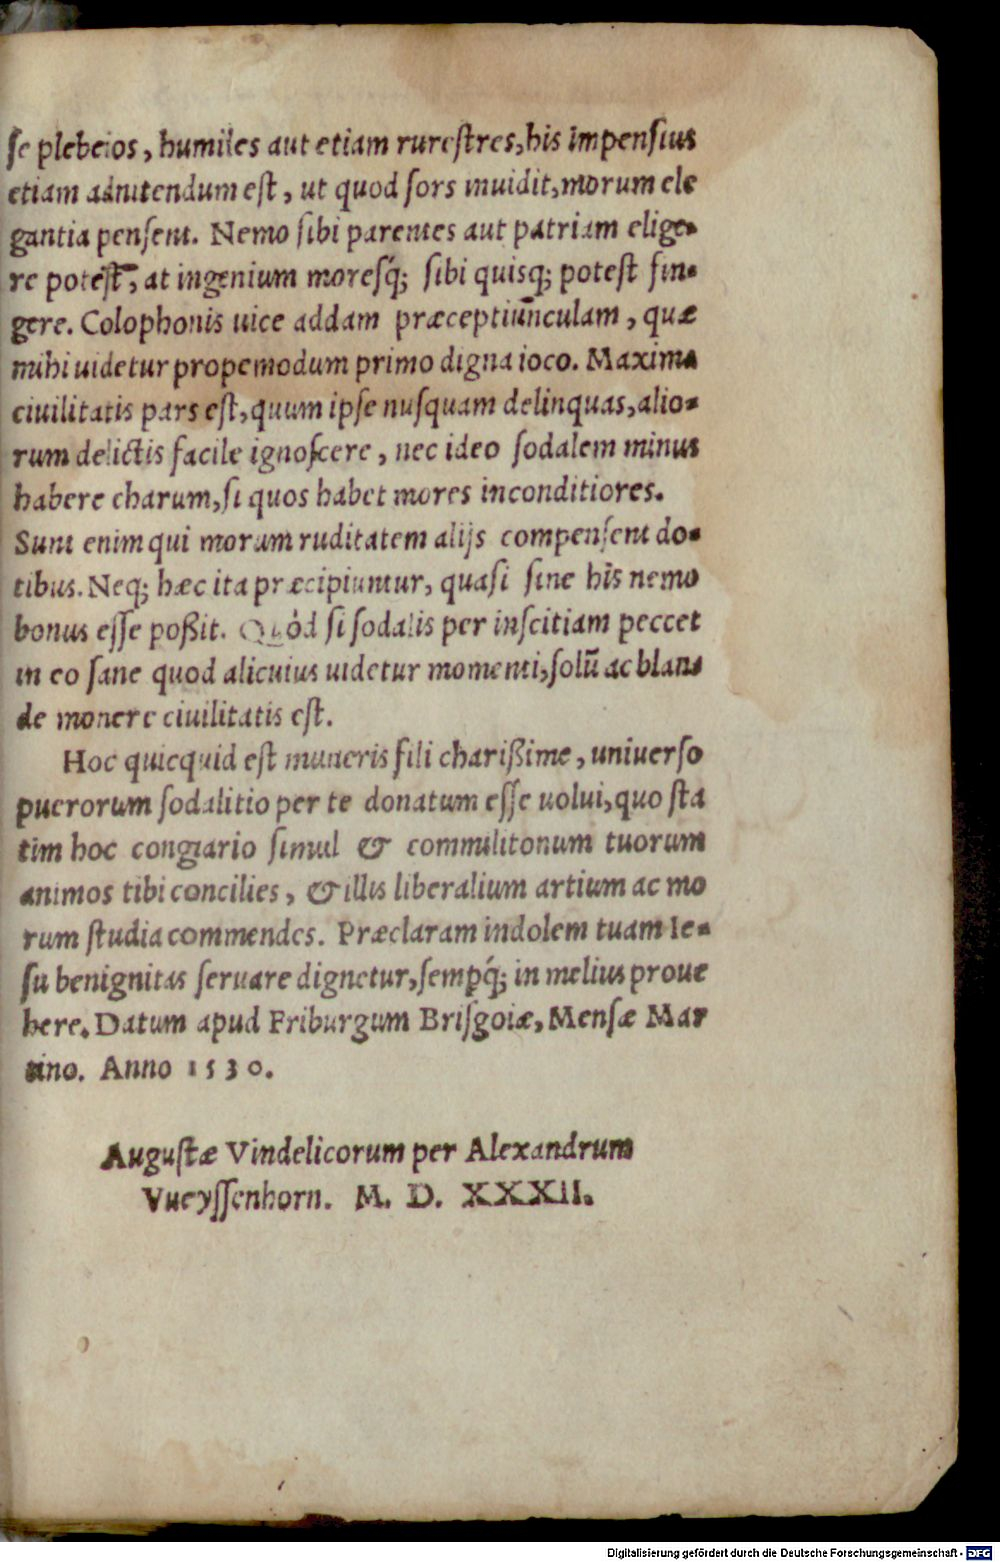 ſe plebeios, humiles aut etiam rureſtres, his impenſius
etiam adnitendum eſt, ut quod ſors inuidit, morum ele
gantia penſent. Nemo ſibi parentes aut patriam elige-
re poteſt, at ingenium moresq́; ſibi quisq; poteſt fin-
gere. Colophonis uice addam præceptiunculam, quæ
mihi uidetur propemodum primo digna ioco. Maxima
ciuilitatis pars eſt, quum ipſe nuſquam delinquas, alio-
rum delictis facile ignoſcere, nec ideo ſodalem minus
habere charum, ſi quos habet mores inconditiores.
Sunt enim qui morum ruditatem alijs compenſent do-
tibus. Neq; hæc ita præcipiuntur, quaſi ſine his nemo
bonus eſſe poßit. Quòd ſi ſodalis per inſcitiam peccet
in eo ſane quod alicuius uidetur momenti, ſolũ ac blan
de monere ciuilitatis eſt.
Hoc quicquid eſt muneris fili charißime, uniuerſo
puerorum ſodalitio per te donatum eſſe uolui, quo ſta
tim hoc congiario ſimul & commilitonum tuorum
animos tibi concilies, & illis liberalium artium ac mo
rum ſtudia commendes. Præclaram indolem tuam Ie-
ſu benignitas ſeruare dignetur, ſemꝑq́; in melius proue
here. Datum apud Friburgum Briſgoiæ, Menſæ Mar
tino. Anno 1530.
Auguſtæ Vindelicorum per Alexandrum
Vueyſſenhorn. M. D. XXXII.
Digitalisierung gefördert durch die Deutsche Forschungsgemeinschaft - DFG